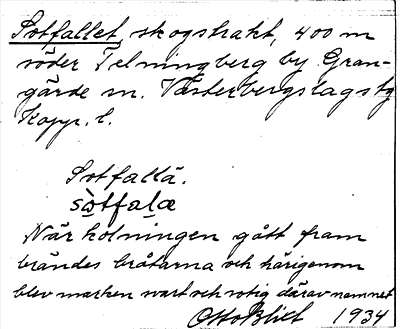 Sotfallet, skogstrakt, 400 m
söder Telningberg by Gran-
gärde sn. Västerbergslags tg
Kopp. l.
Sotfallä.
sòtfalæ
När kolningen gått fram
brändes bråtarna och härigenom
blev marken svart och sotig därav namnet
Otto Blixt 1934